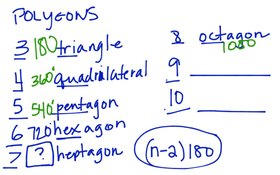 POLYGONS
3 180 triangle
4 360° quadrilateral
5 540° pentagon
6 720 hexagon
7 ? heptagon
8 octagon
1080
9
10
(n-2)180